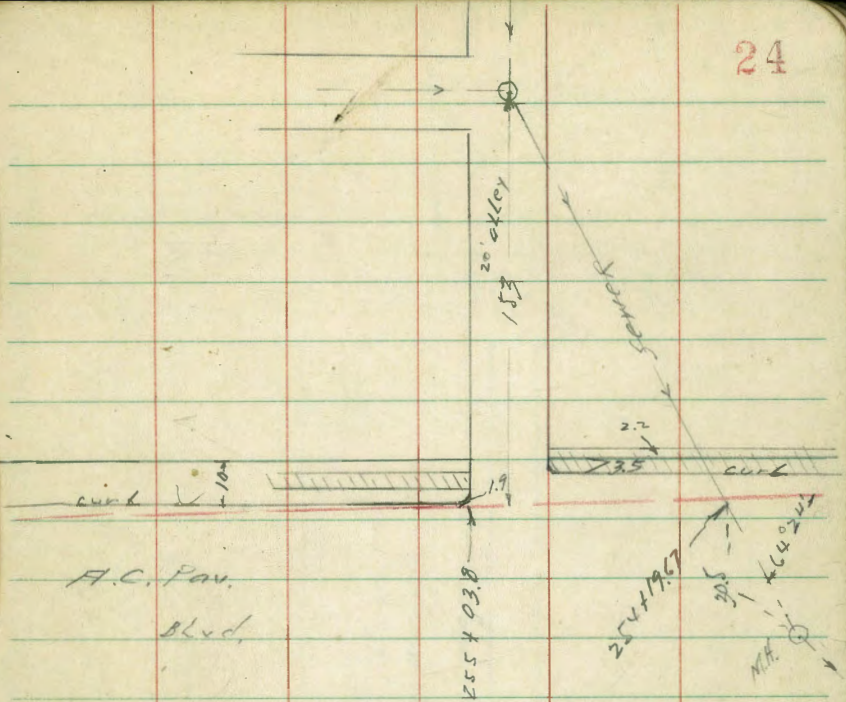 24
20' alley
153
sewer
2.2
3.5
curb
curb
10.4
1.9
A.C. Pav.
Blvd.
255+03.8
254+19.67
30.5
64°24'
M.H.